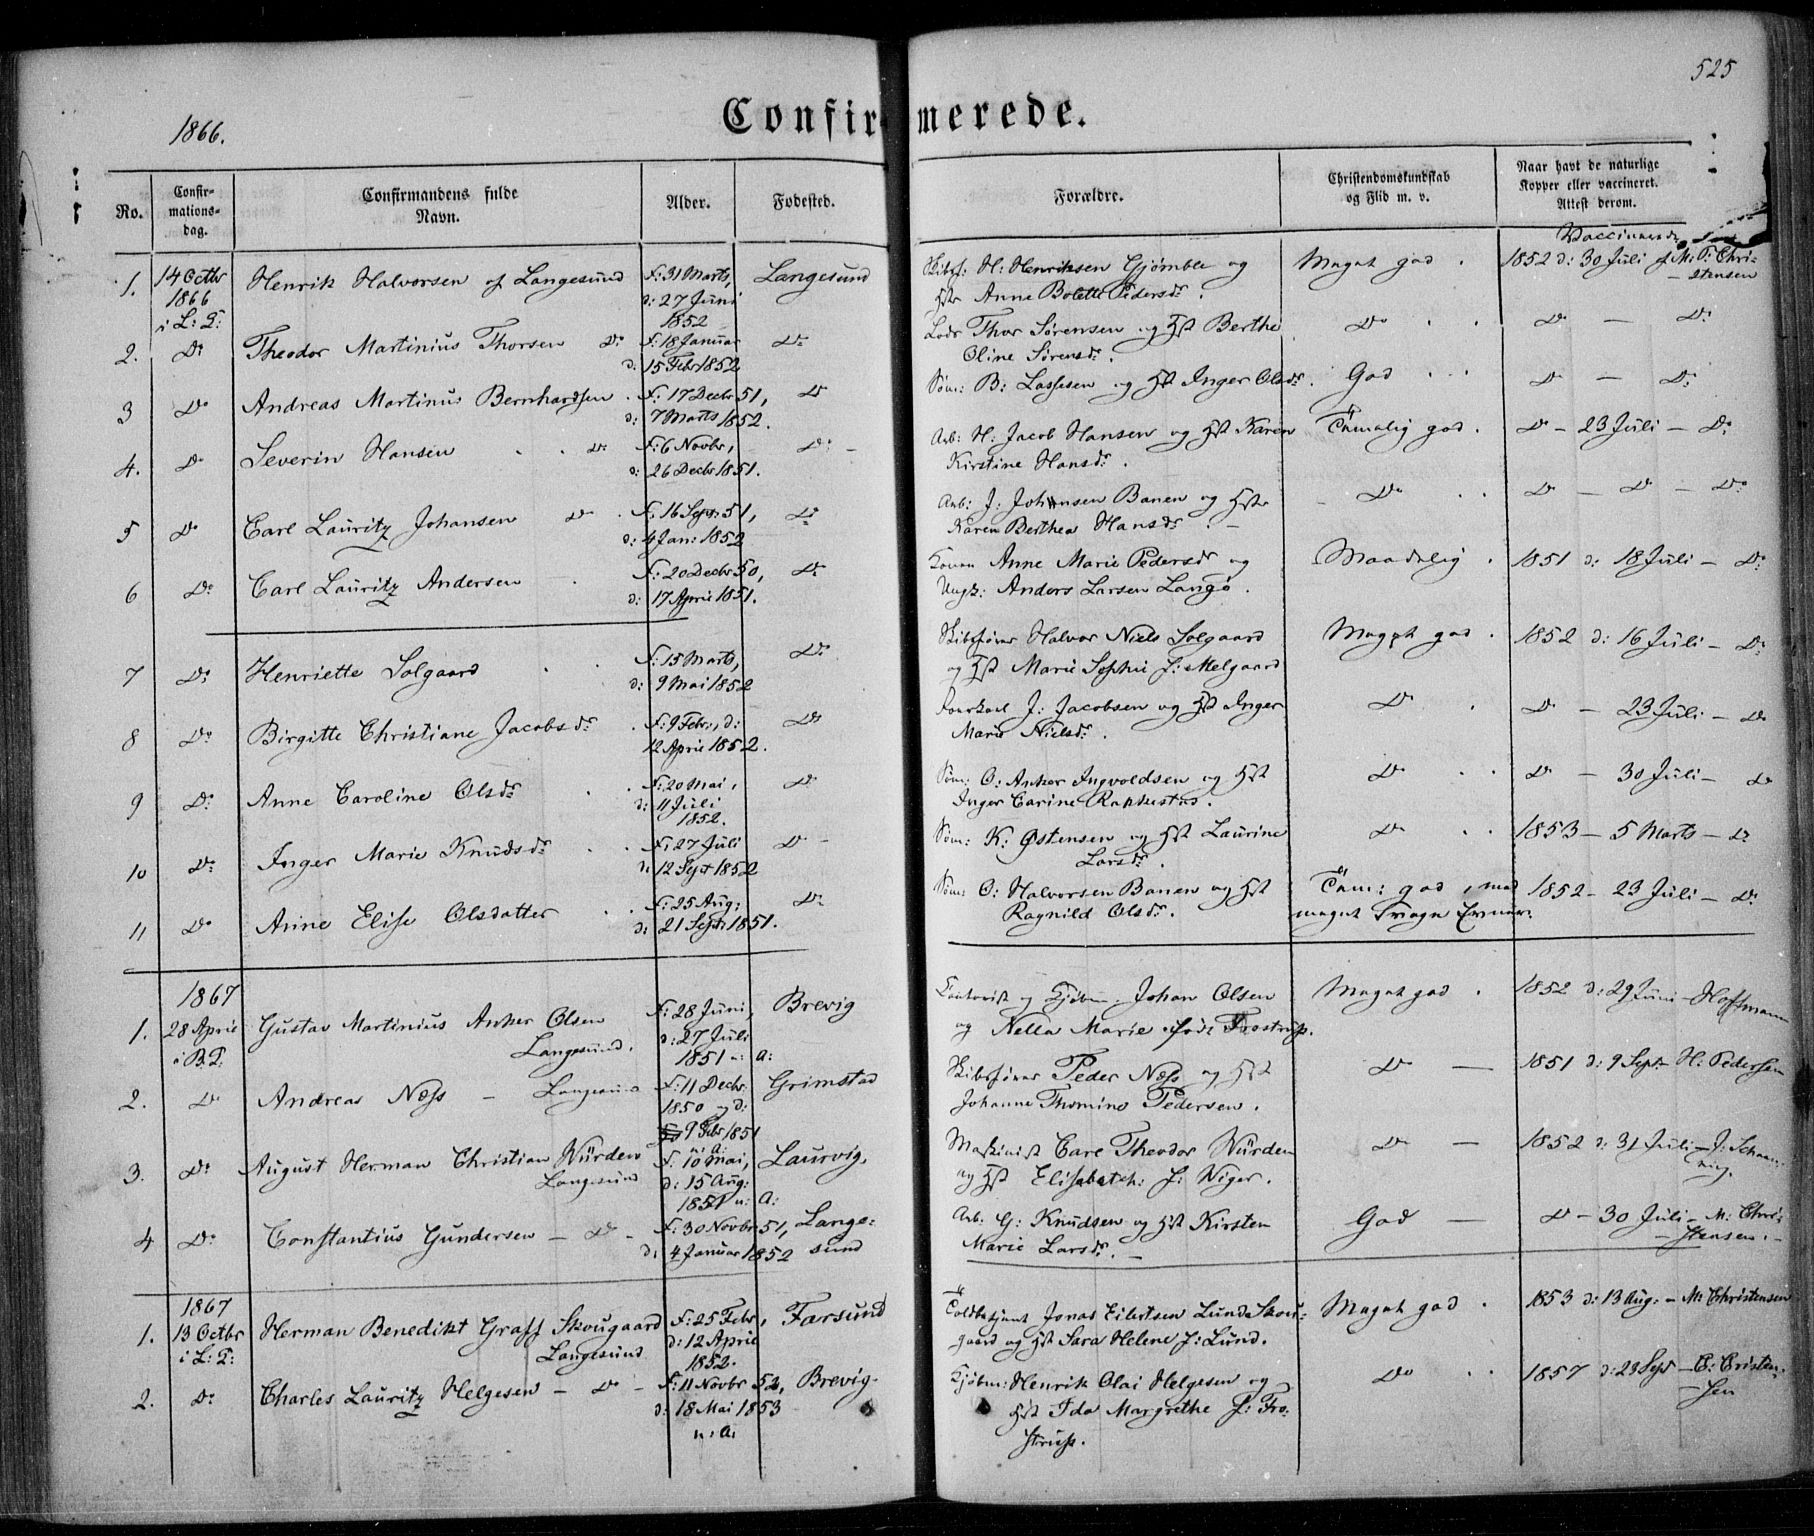 525
1866.
Confirmerede.
No.
Confir-
mations-
dag.
Confirmandens fulde
Navn.
Alder.
Fødested.
Forældre.
Christendomskundskab
og Flid m. v.
Naar havt de naturlige
Kopper eller vaccineret.
Attest derom.
1. 14 Octbr 1866 i L: T: Henrik Halvorsen af Langesund F: 31 Marts, d: 27 Juni 1852 Langesund Skibsf: H: Henriksen Gjømble og Hst Anne Bolette Pedersdr. Meget god. 1852 d: 30 Juli af M: P: Christensen
2. Do Theodor Martinius Thorsen Do F: 18 Januar d: 15 Febr 1852 Do Lods Thor Sørensen og Hst Berthe Oline Sørensdr. Do Do — Do
3 Do Andreas Martinus Bernhardsen F: 17 Decbr 51, d: 7 Marts 1852. Do Søm: B: Lassesen og Hst Inger Olsdr. God Do — Do
4. Do Severin Hansen Do F: 6 Novbr, d: 26 Decbr 1851. Do Arb: H: Jacob Hansen og Hst Karen Kirstine Hansdr. Temalig god. Do — 23 Juli — Do
5 Do Carl Lauritz Johansen Do F: 16 Sept: 51, d: 4 Jan: 1852 Do Arb: J: Johnsen Banen og Hst Karen Berthea Hansdr. Do Do — Do — Do
6 Do Carl Lauritz Andersen F: 20 Decbr 50, d: 17 April 1851. Do Konen Anne Marie Pedersdr og Ungk: Anders Larsen Langø. Maadelig. 1851 d: 18 Juli — Do
7 Do Henriette Solgaard F: 15 Marts, d: 9 Mai 1852 Do Skibsfører Halvor Niels Solgaard og Hst Marie Sophie f: Melgaard Meget god. 1852 d: 16 Juli — Do
8 Do Birgitte Christiane Jacobsdr. F: 9 Febr:, d: 12 April 1852. Do J: Jacobsen og Hst Inger Marie Nielsdr. Do Do — 23 Juli — Do
9 Do Anne Caroline Olsdr F: 20 Mai, d: 11 Juli 1852. Do Søm: O: Anker Ingvoldsen og Hst Inger Carine Do Do — 30 Juli — Do
10 Do Inger Marie Knudsdr F: 27 Juli d: 12 Sept 1852 Do Søm: K: Østensen og Hst Laurine Larsdr. Do 1853 — 5 Marts — Do
11 Do Anne Elise Olsdatter F: 25 Aug: d: 21 Sept: 1851. Do Søm: O: Halvorsen Banen og Hst Ragnild Olsdr. Tem: god, med meget Evner. 1852 — 23 Juli — Do
1. 1867 28 April i B: T: Gustav Martinius Anker Olsen Langesund. F: 28 Juni, d: 27 Juli 1851 n: a: Brevig Contorist og Kjøbm. Johan Olsen og Nella Marie født Frostrup. Meget god. 1852 d: 29 Juni — Hoffmann
2. Do Andreas Næss — Langesund F: 11 Decbr 1850 og d: 9 Febr 1851 n: a: Grimstad Skibsfører Peder Næss og Hst Johanne Thomine Pedersen. Do — 1851 d: 9 Sept: — H: Pedersen
3. Do August Herman Christian Würden Langesund F: 10 Mai, d: 15 Aug: 1851 n: a: Laurvig. Maskinist Carl Theodor Würden og Hst Elisabeth: f: Wiger. Do — 1852 d: 31 Juli — J: Schanning.
4 Do Constantius Gundersen — Do — F: 30 Novbr 51, d: 4 Januar 1852 Langesund Arb: G: Knudsen og Hst Kirsten Marie Larsdr. God — Do — 30 Juli — M: Christensen.
1. 1867 13 Octbr i L: T: Herman Benedikt Graff Skougaard Langesund F: 25 Febr, d: 12 April 1852. Farsund Toldbetjent Jonas Eilertsen Lunde Skougaard og Hst Sara Helene f: Lund. Meget god. 1853 d: 13 Aug: — M: Christensen
2. Do Charles Lauritz Helgesen — Do — F: 11 Novbr 52, d: 18 Mai 1853 n: a: Brevig. Kjøbm: Henrik Olai Helgesen og Hst Ida Margrethe f: Frostrup. Do 1857 d: 23 Sept — E: Cristensen